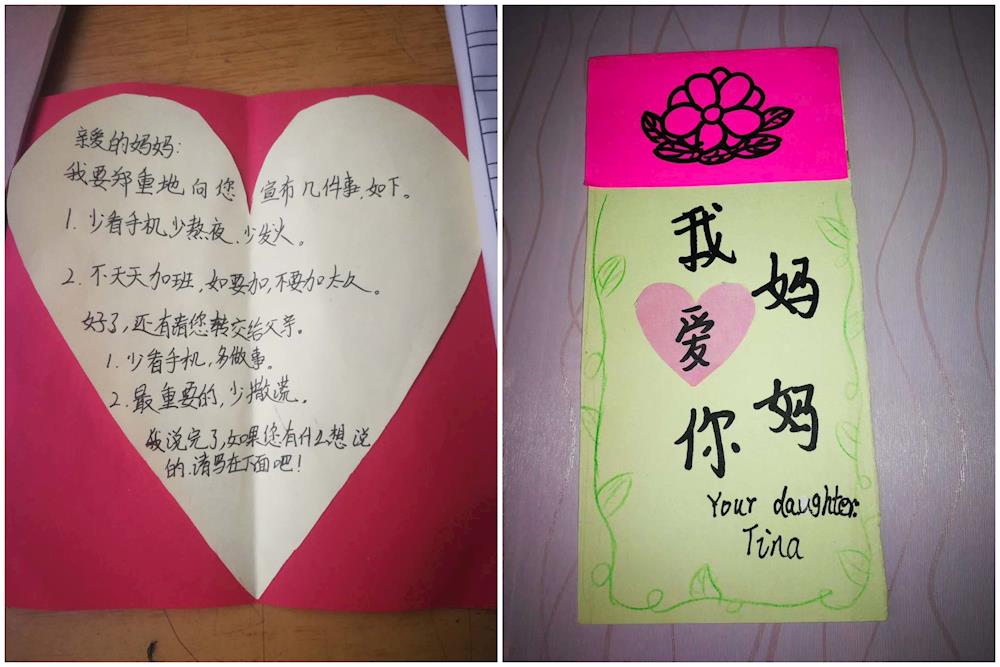 亲爱的妈妈:
我要郑重地向您 宣布几件事,如下。
1. 少看手机,少熬夜、少发火。
2. 不天天加班,如要加,不要加太久。
好了,还有请您转交给父亲。
1. 少看手机,多做事。
2. 最重要的,少撒谎。
我说完了,如果您有什么想说
的.请写在下面吧!
我爱你
妈妈
Your daughter:
Tina